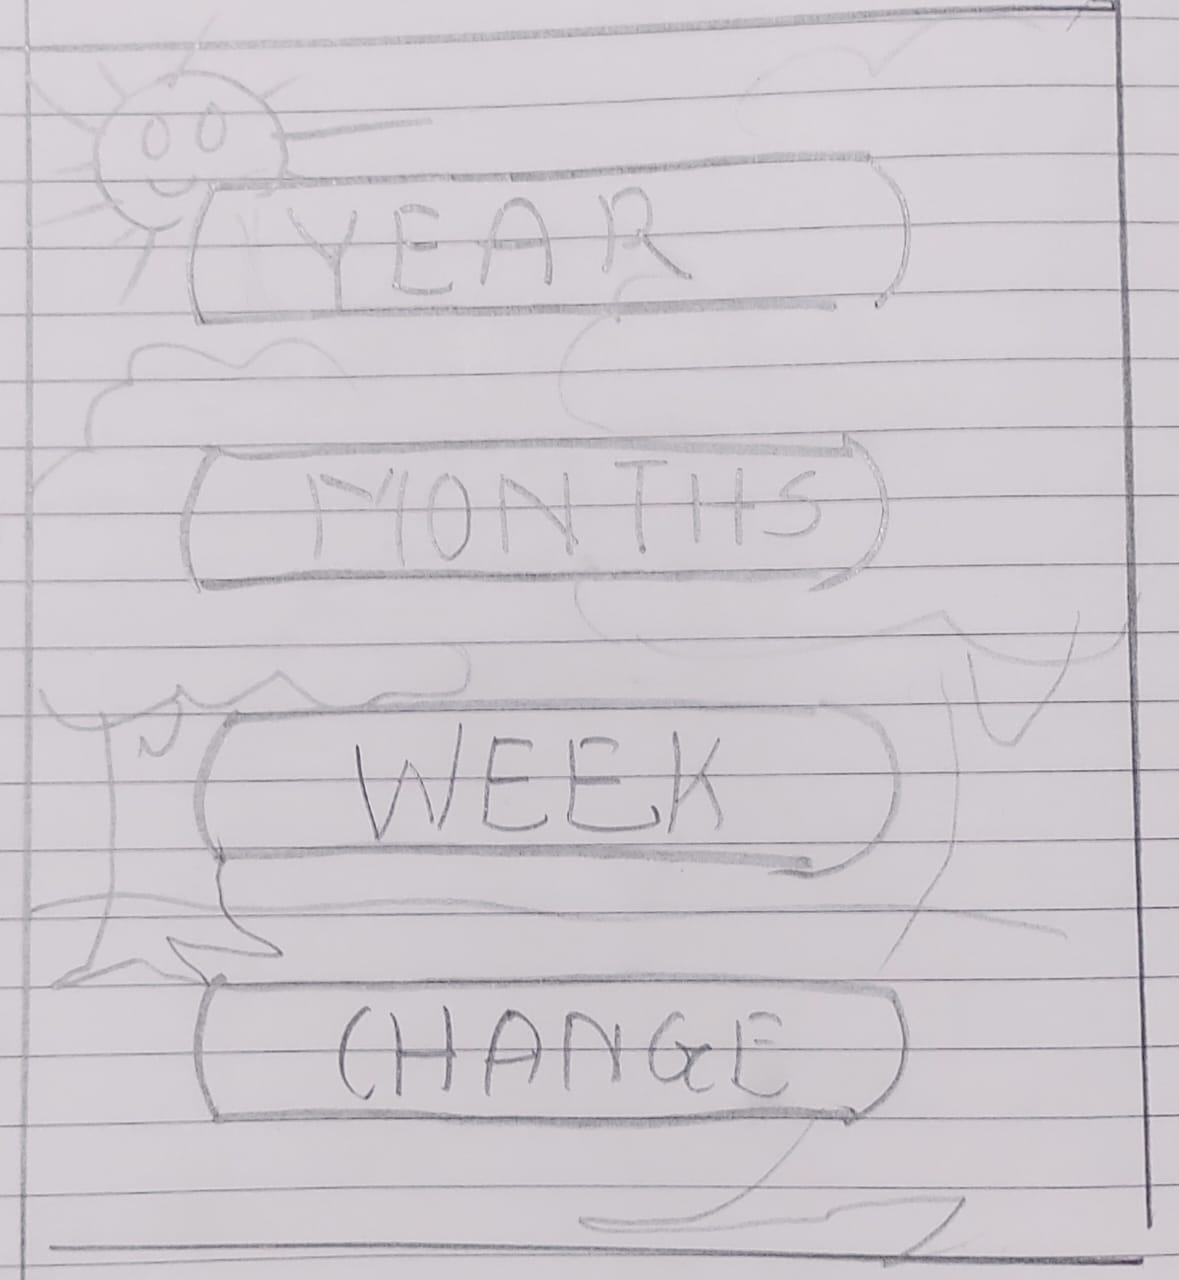 YEAR
MONTHS
WEEK
CHANGE